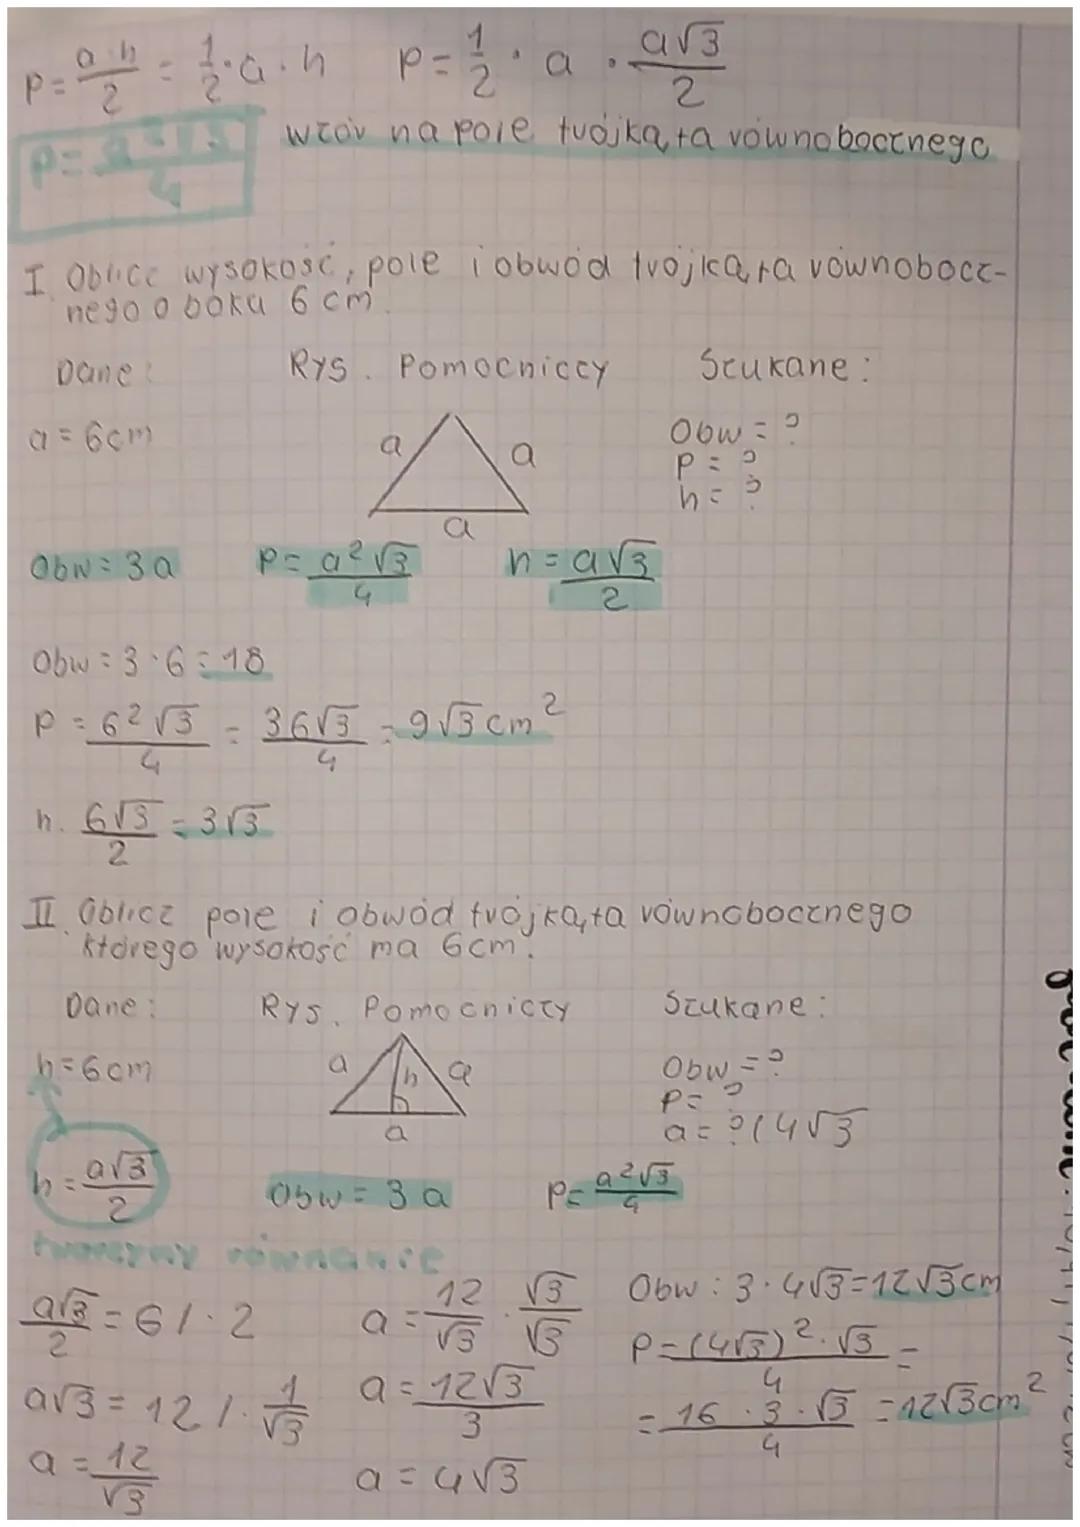 P = a·h/2 = 1/2 · a · h   P = 1/2 · a · a√3/2
P = a²√3/4   wzór na pole trójkąta równobocznego
I. Oblicz wysokość, pole i obwód trójkąta równobocz-
nego o boku 6 cm.
Dane:   Rys. Pomocniczy   Szukane:
a = 6cm   a   a   Obw = ?
P = ?
h = ?
a
Obw = 3a   P = a²√3/4   h = a√3/2
Obw = 3·6 = 18
P = 6²√3/4 = 36√3/4 = 9√3 cm²
h. 6√3/2 = 3√3
II. Oblicz pole i obwód trójkąta równobocznego
którego wysokość ma 6cm.
Dane:   Rys. Pomocniczy   Szukane:
h = 6cm   a   h   a   Obw = ?
P = ?
a   a = ? (4√3
h = a√3/2   Obw = 3a   P = a²√3/4
tworzymy równanie
a√3/2 = 6 /·2   a = 12/√3 · √3/√3   Obw: 3·4√3 = 12√3 cm
a√3 = 12 /· 1/√3   a = 12√3/3   P = (4√3)²·√3/4 =
a = 12/√3   a = 4√3   = 16·3·√3/4 = 12√3 cm²